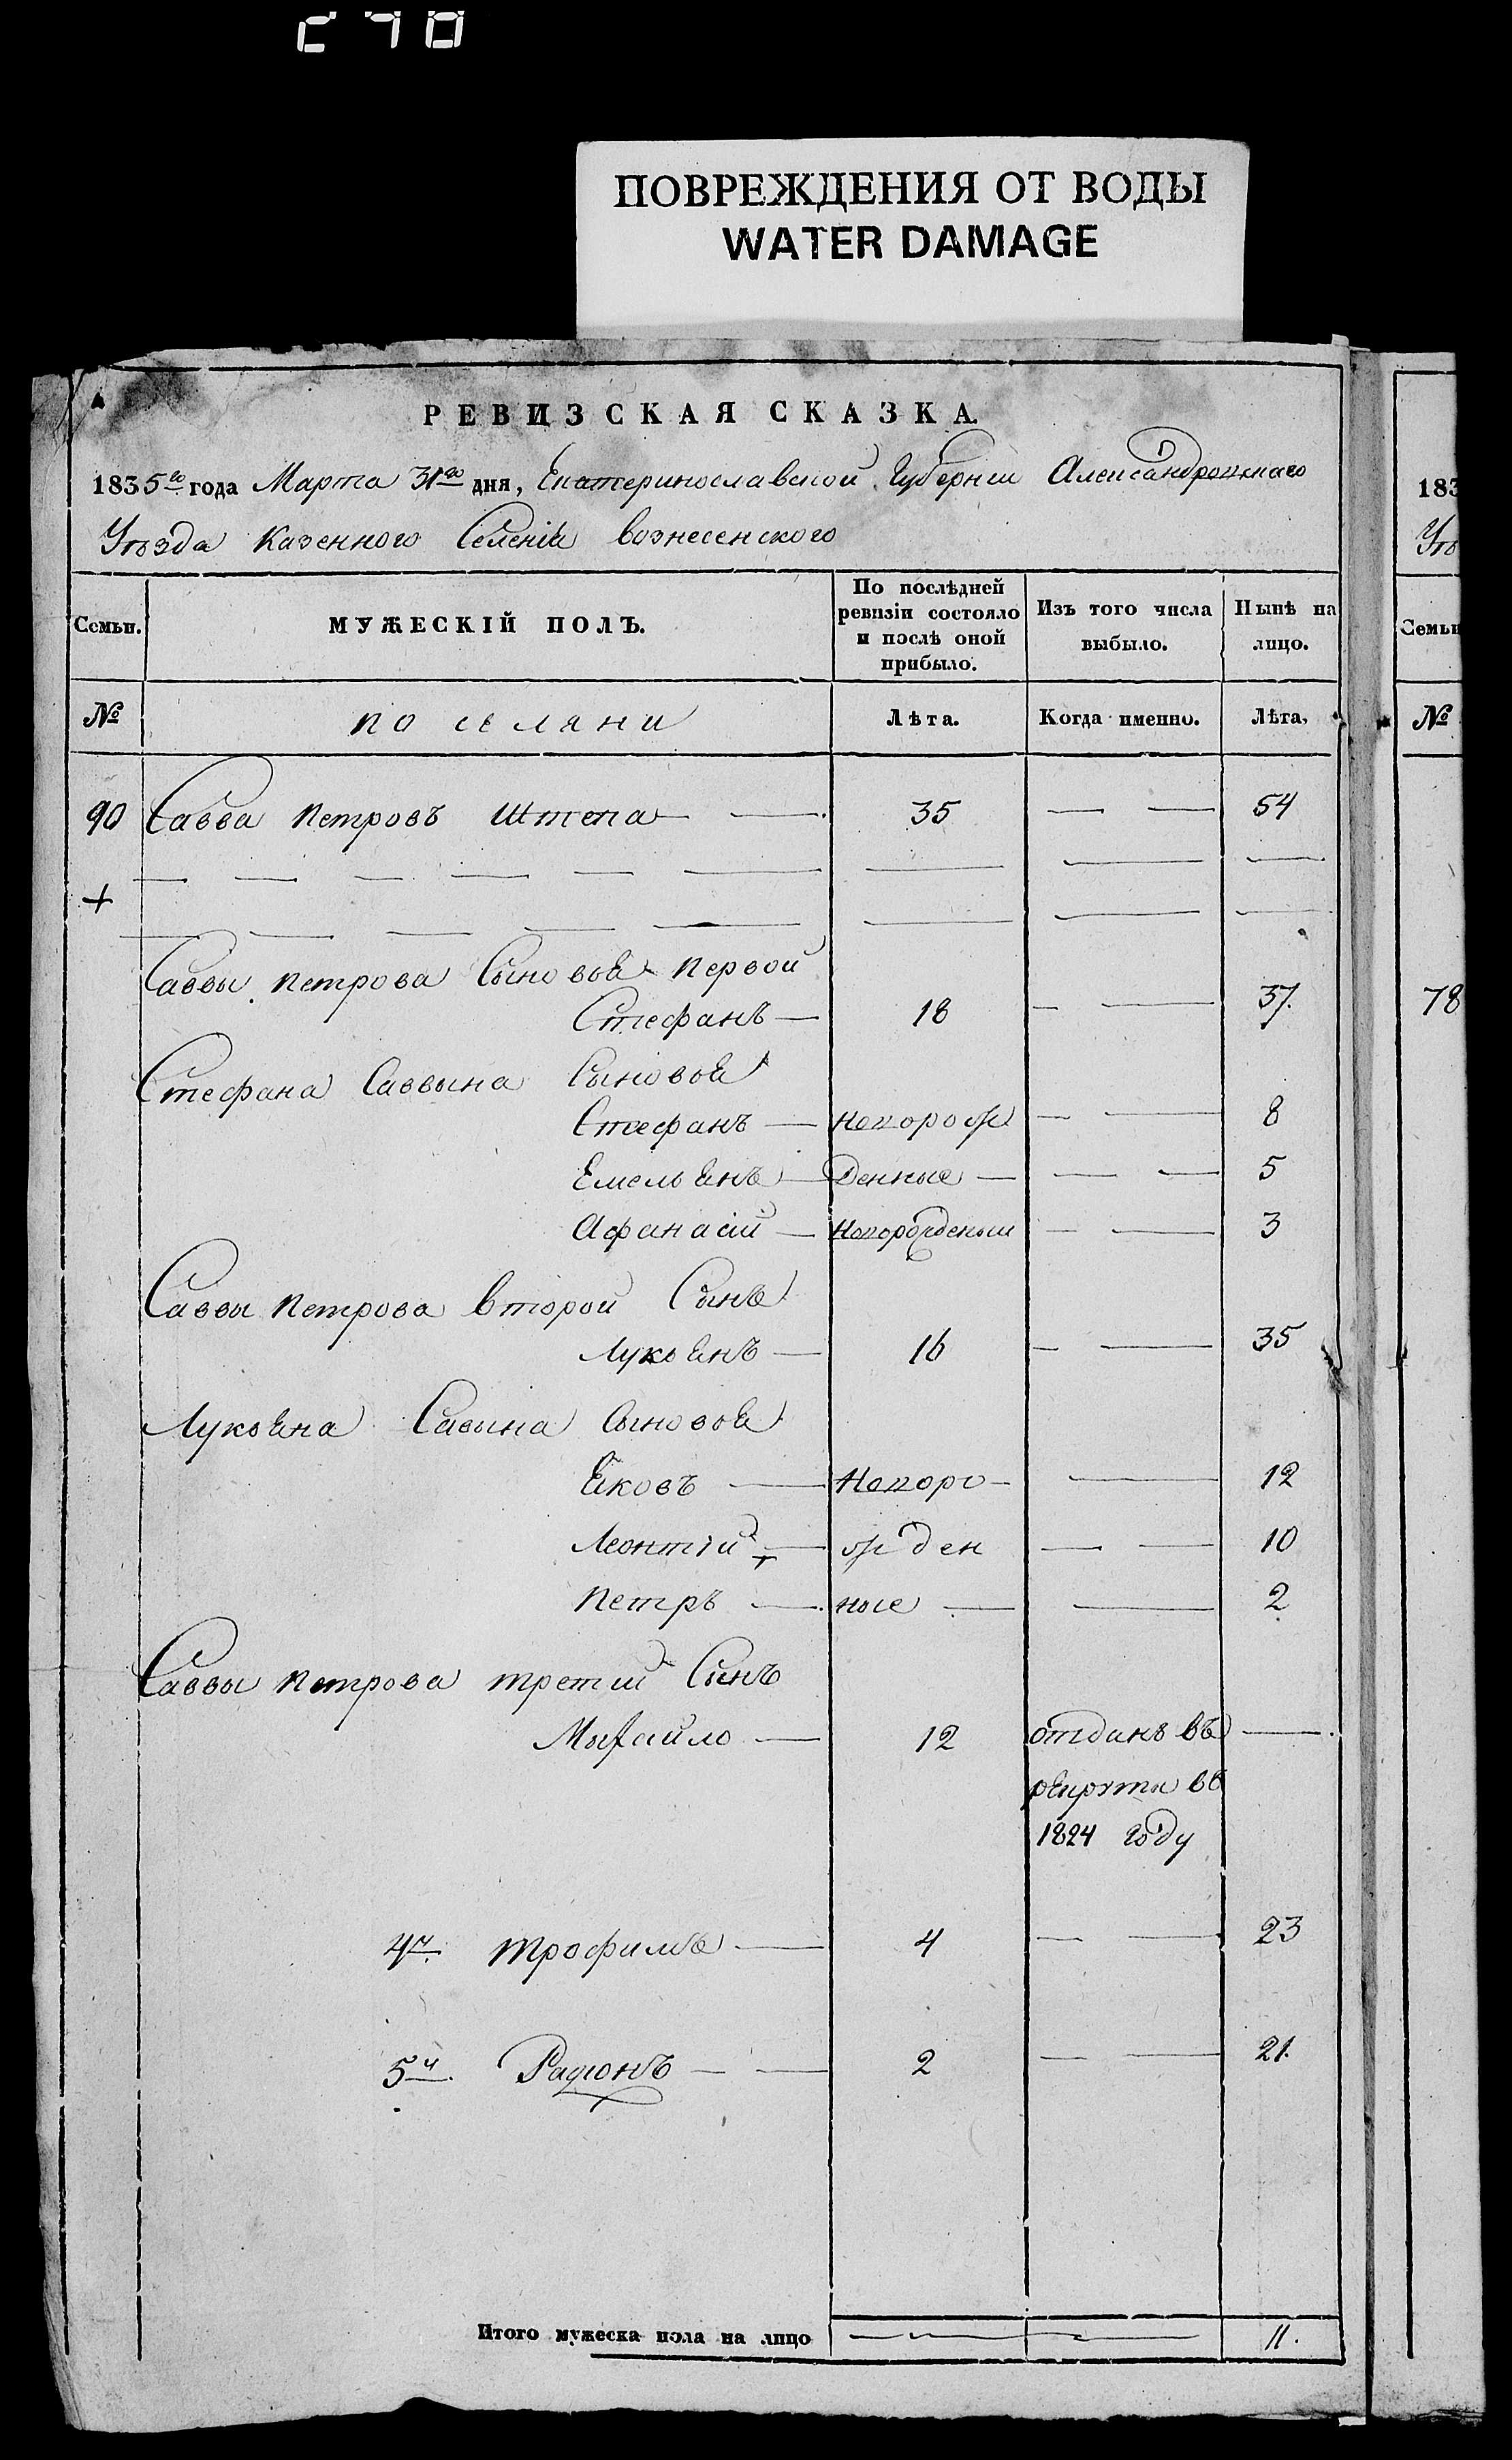 С 70
ПОВРЕЖДЕНИЯ ОТ ВОДЫ
WATER DAMAGE
РЕВИЗСКАЯ СКАЗКА.
1835го года Марта 31го дня, Екатеринославской Губерніи Александровскаго
Уѣзда Казенного Селенія вознесенского
Семьи. МУЖЕСКІЙ ПОЛЪ. По послѣдней ревизіи состояло и послѣ оной прибыло. Изъ того числа выбыло. Нынѣ на лицо.
№ поселяни Лѣта. Когда именно. Лѣта.
90 Савва Петровъ Штепа 35 — — 54
+
Саввы Петрова Сыновья Первой
Стефанъ — 18 — — 37.
Стефана Саввина Сыновья
Стефанъ — Новорож — — 8
Емельянъ — Денные — — — 5
Афанасій — Новорожденый — — 3
Саввы Петрова второй Сынъ
Лукьянъ — 16 — — 35
Лукьяна Савина Сыновья
Яковъ — Новоро — — 12
Леонтій — жден — — 10
Петръ — ные — — 2
Саввы Петрова третій Сынъ
Михайло — 12 отданъ въ —
рекруты въ
1824 году
4й. Трофимъ — 4 — — 23
5й. Радионъ — — 2 — — 21.
Итого мужеска пола на лицо — — 11.
183
Уѣ
Семьи
№
78